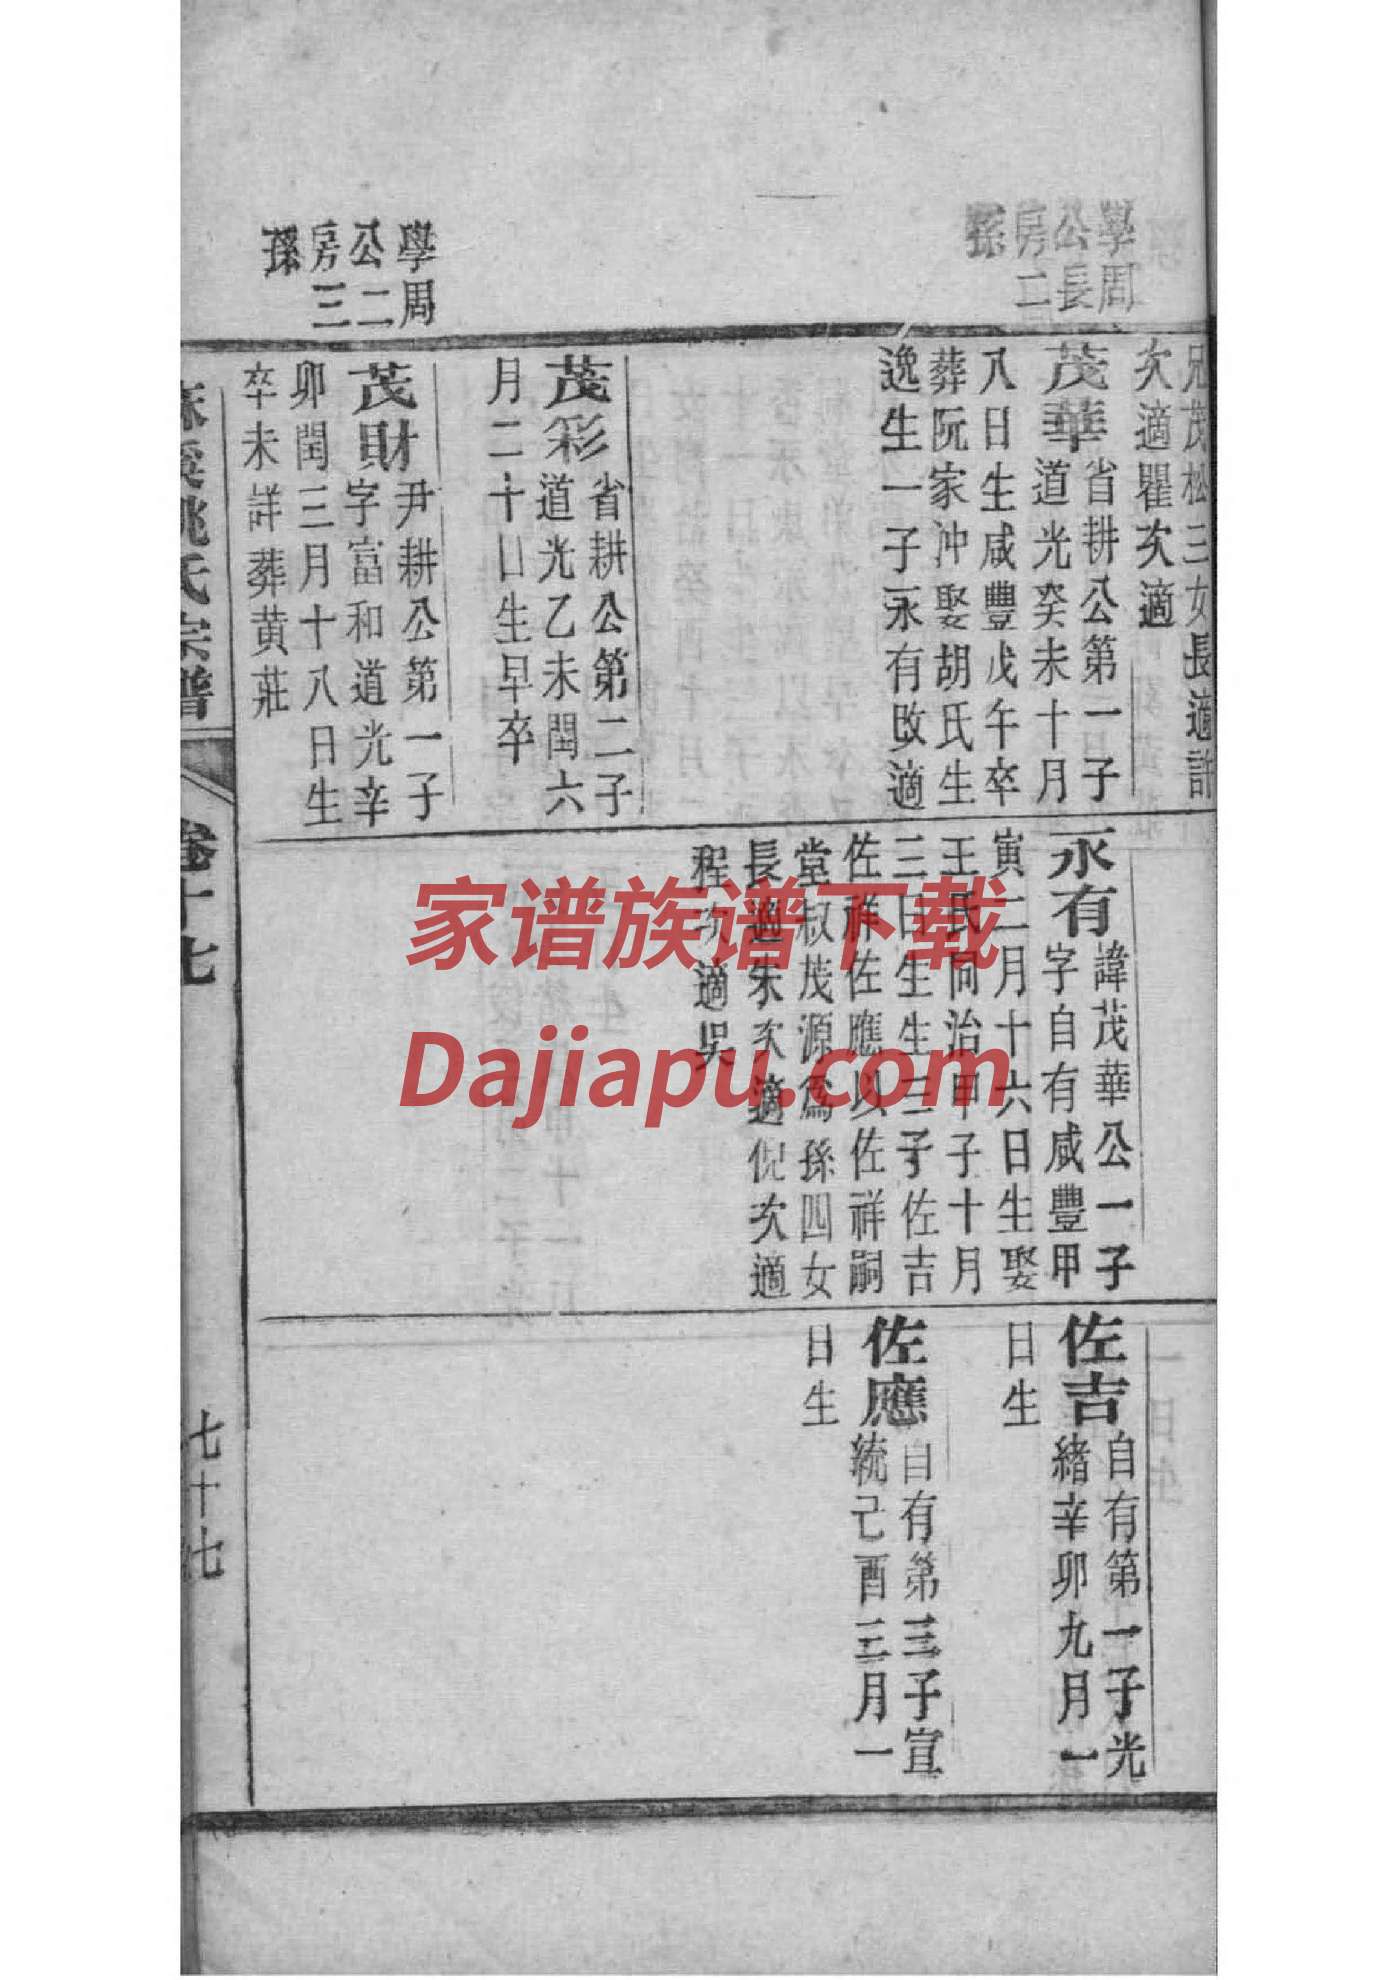 學周
公長
房二
孫
學周
公二
房三
孫
兄茂松三女長適許
次適瞿次適
茂華
省耕公第一子
道光癸未十月
八日生咸豐戊午卒
葬阮家沖娶胡氏生
逸生一子永有改適
茂彩
省耕公第二子
道光乙未閏六
月二十日生早卒
茂財
尹耕公第一子
字富和道光辛
卯閏三月十八日生
卒未詳葬黃莊
永有
諱茂華公一子
字自有咸豐甲
寅二月十六日生娶
王氏同治甲子十月
三日生生三子佐吉
佐祥佐應以佐祥嗣
堂叔茂源爲孫四女
長適朱次適倪次適
程次適吳
佐吉
自有第一子光
緒辛卯九月一
日生
佐應
自有第三子宣
統己酉三月一
日生
姚氏宗譜
卷十七
七十七
家谱族谱下载
Dajiapu.com